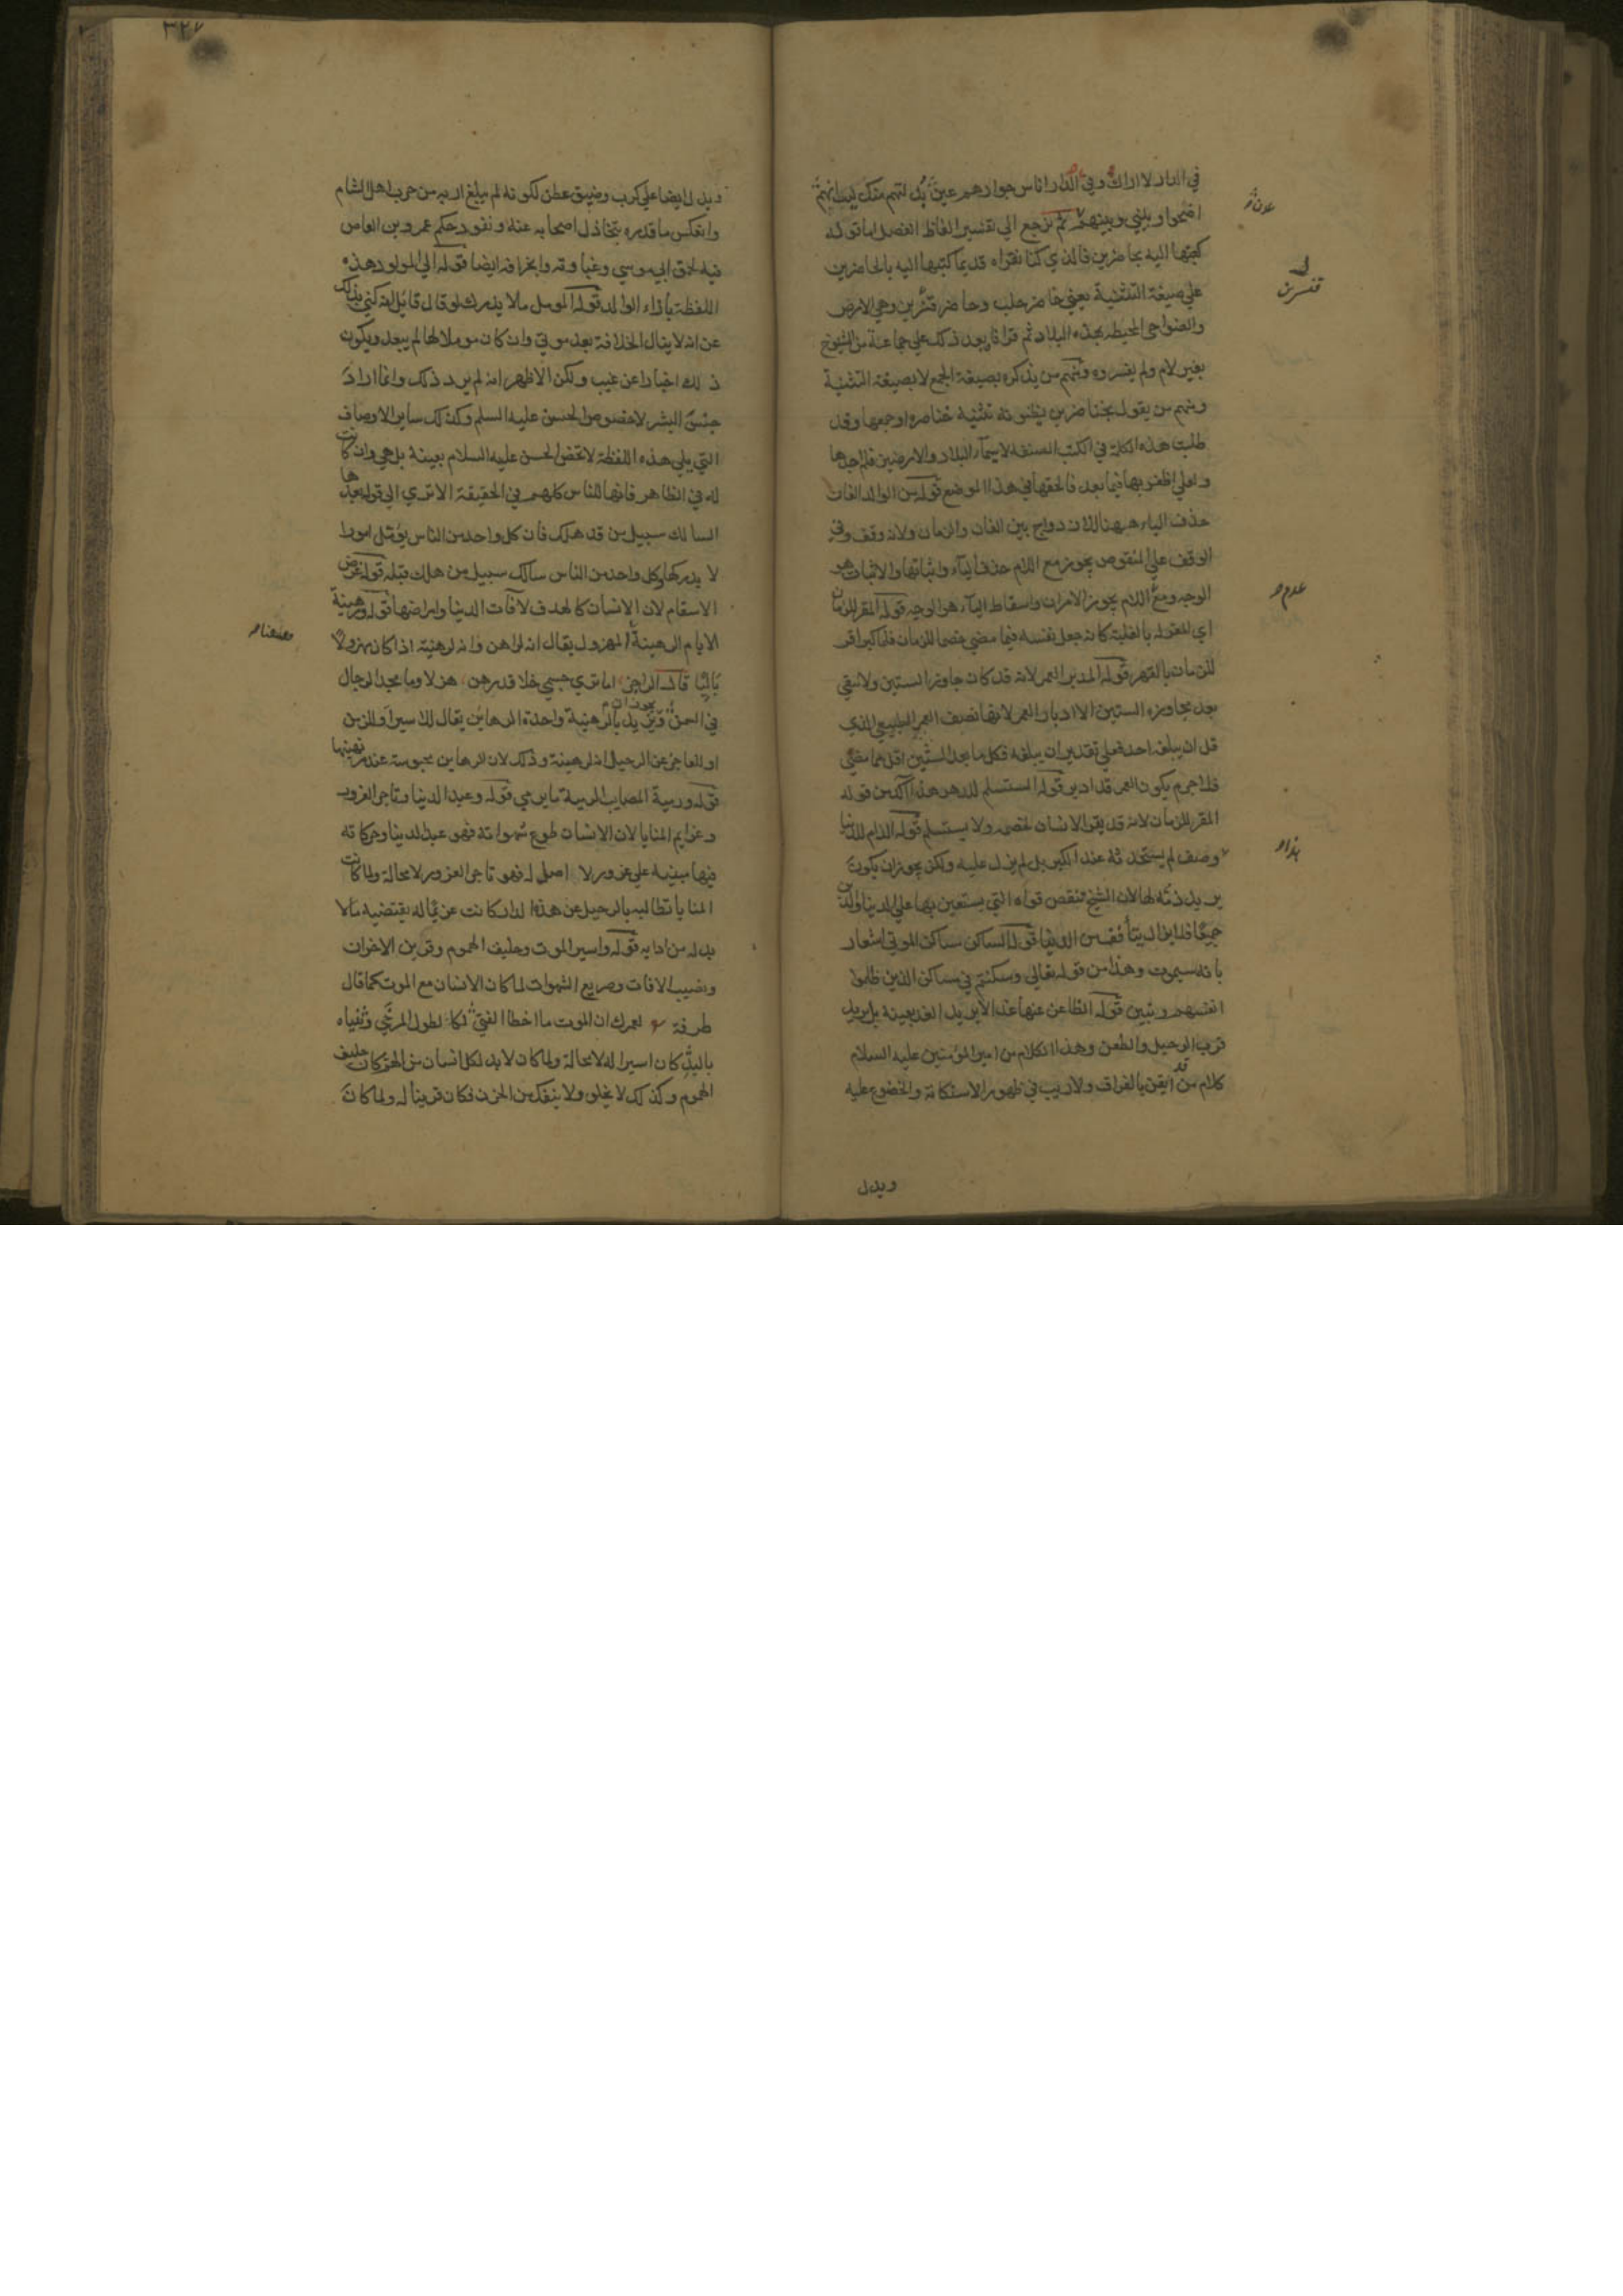 في الدار لا اراك وفي الدار اناس جوارهم عين لتهم منك ليت انهم
اضحوا وبيني وبينهم ثم نرجع الي تفسير الفاظ الفصل اما قوله
كتبها اليه بحاضرين فالذي كنا نقراه قديما كتبها اليه بالحاضرين
علي صيغة التثنية يعني حاضر حلب وحاضر قنسرين وهي الارض
والضواحي المحيطه بهذه البلاد ثم قراناه بعد ذلك علي جماعة من الشيوخ
بغير لام ولم يفسروه ومنهم من يذكره بصيغة الجمع لا بصيغة التثنية
ومنهم من يقول بخناصرين يظنونه تثنية خناصره او جمعها وقد
طلبت هذه الكلمة في الكتب المصنفه لاسيما البلاد والارضين فلم اجدها
ولعلي اظفر بها فيما بعد فالحقها في هذا الموضع قوله من الوالد الفان
حذف الياء ههنا للازدواج بين الفان والزمان ولانه وقف وفي
الوقف علي المنقوص يجوز مع اللام حذف الياء واثباتها والاثبات هو
الوجه ومع اللام يجوز الامران واسقاط الياء هو الوجه قوله المقر للزمان
اي المقر له بالغلبة كانه جعل نفسه فيما مضي خصما للزمان فلما كبر اقر
للزمان بالقهر قوله المدبر العمر لانه قد كان جاوز الستين ولا يبقي
بعد مجاوزه الستين الا ادبار العمر لانها نصف العمر الطبيعي الذي
قل ان يبلغه احد فعلي تقدير ان يبلغه فكل ما بعد الستين اقل مما مضي
فلا جرم يكون العمر قد ادبر قوله المستسلم للدهر هذا آكد من قوله
المقر للزمان لانه قد يقر الانسان لخصمه ولا يستسلم قوله الذام للدنيا
وصف لم يستحدثه عند الكبر بل لم يزل عليه ولكن يجوز ان يكون
يريد ذمه لها لان الشيخ تنقص قواه التي يستعين بها علي الدنيا والدين
جميعا فلا يزال يتأفف من الدنيا قوله الساكن مساكن الموتي اشعار
بانه سيموت وهذا من قوله تعالي وسكنتم في مساكن الذين ظلموا
انفسهم وتبين قوله الظاعن عنها غدا لا يريد الغد بعينه بل يريد
قرب الرحيل والظعن وهذا الكلام من امير المؤمنين عليه السلام
كلام من قد ايقن بالفراق ولا ريب في ظهور الاستكانة والخضوع عليه
ويدل
قنسرين
٣٢٧
ويدل ايضا علي كرب وضيق عطن لكونه لم يبلغ اربه من حرب اهل الشام
وانعكس ما قدره بتخاذل اصحابه عنه ونفوذ حكم عمرو بن العاص
فيه لحمق ابي موسي وغباوته وانحرافه ايضا قوله الي المولود هذه
اللفظة بأزاء الوالد قوله المومل ما لا يدرك لو قال قائل انه كني بذلك
عن انه لا ينال الخلافة بعد موتي وان كان مومولا لها لم يبعد ويكون
ذلك اخبارا عن غيب ولكن الاظهر انه لم يرد ذلك وانما اراد
جنس البشر لا خصوص الحسن عليه السلم وكذلك ساير الاوصاف
التي يلي هذه اللفظة لا تخص الحسن عليه السلام بعينه بل هي وان كانت
له في الظاهر فانها للناس كلهم في الحقيقة الا تري الي قوله بعدها
السالك سبيل من قد هلك فان كل واحد من الناس يؤمل امورا
لا يدركها وكل واحد من الناس سالك سبيل من هلك قبله قوله غرض
الاسقام لان الانسان كالهدف لآفات الدنيا وامراضها قوله ورهينة
الايام الرهينة المهزول يقال انه لراهن وانه لرهينة اذا كان مهزولا
باليا قال الراجز اما تري جسمي خلا قد رهن هزلا وما مجد الرجال
في السمن ويجوز ان يريد بالرهينة واحدة الرهاين يقال للاسير او للزمن
او للعاجز عن الرحيل انه لرهينة وذلك لان الرهاين محبوسة عند مرتهنها
قوله ورمية المصايب الرمية ما يرمي قوله وعبد الدنيا وتاجر الغرور
وغرايم المنايا لان الانسان طوع شهواته فهو عبد الدنيا وحركاته
فيها مبنيه علي غرور لا اصل له فهو تاجر الغرور لا محالة ولما كانت
المنايا تطالبه بالرحيل عن هذه الدار كانت غريما له يقتضيه ما لا
بد له من ادايه قوله واسير الموت وحليف الهموم وقرين الاحزان
ونصب الافات وصريع الشهوات لما كان الانسان مع الموت كما قال
طرفة لعمرك ان الموت ما اخطا الفتي لكالطول المرخي وثنياه
باليد كان اسيرا له لا محالة ولما كان لا بد لكل انسان من الهم كان حليف
الهموم وكذلك لا يخلو ولا ينفك من الحزن فكان قرينا له ولما كان